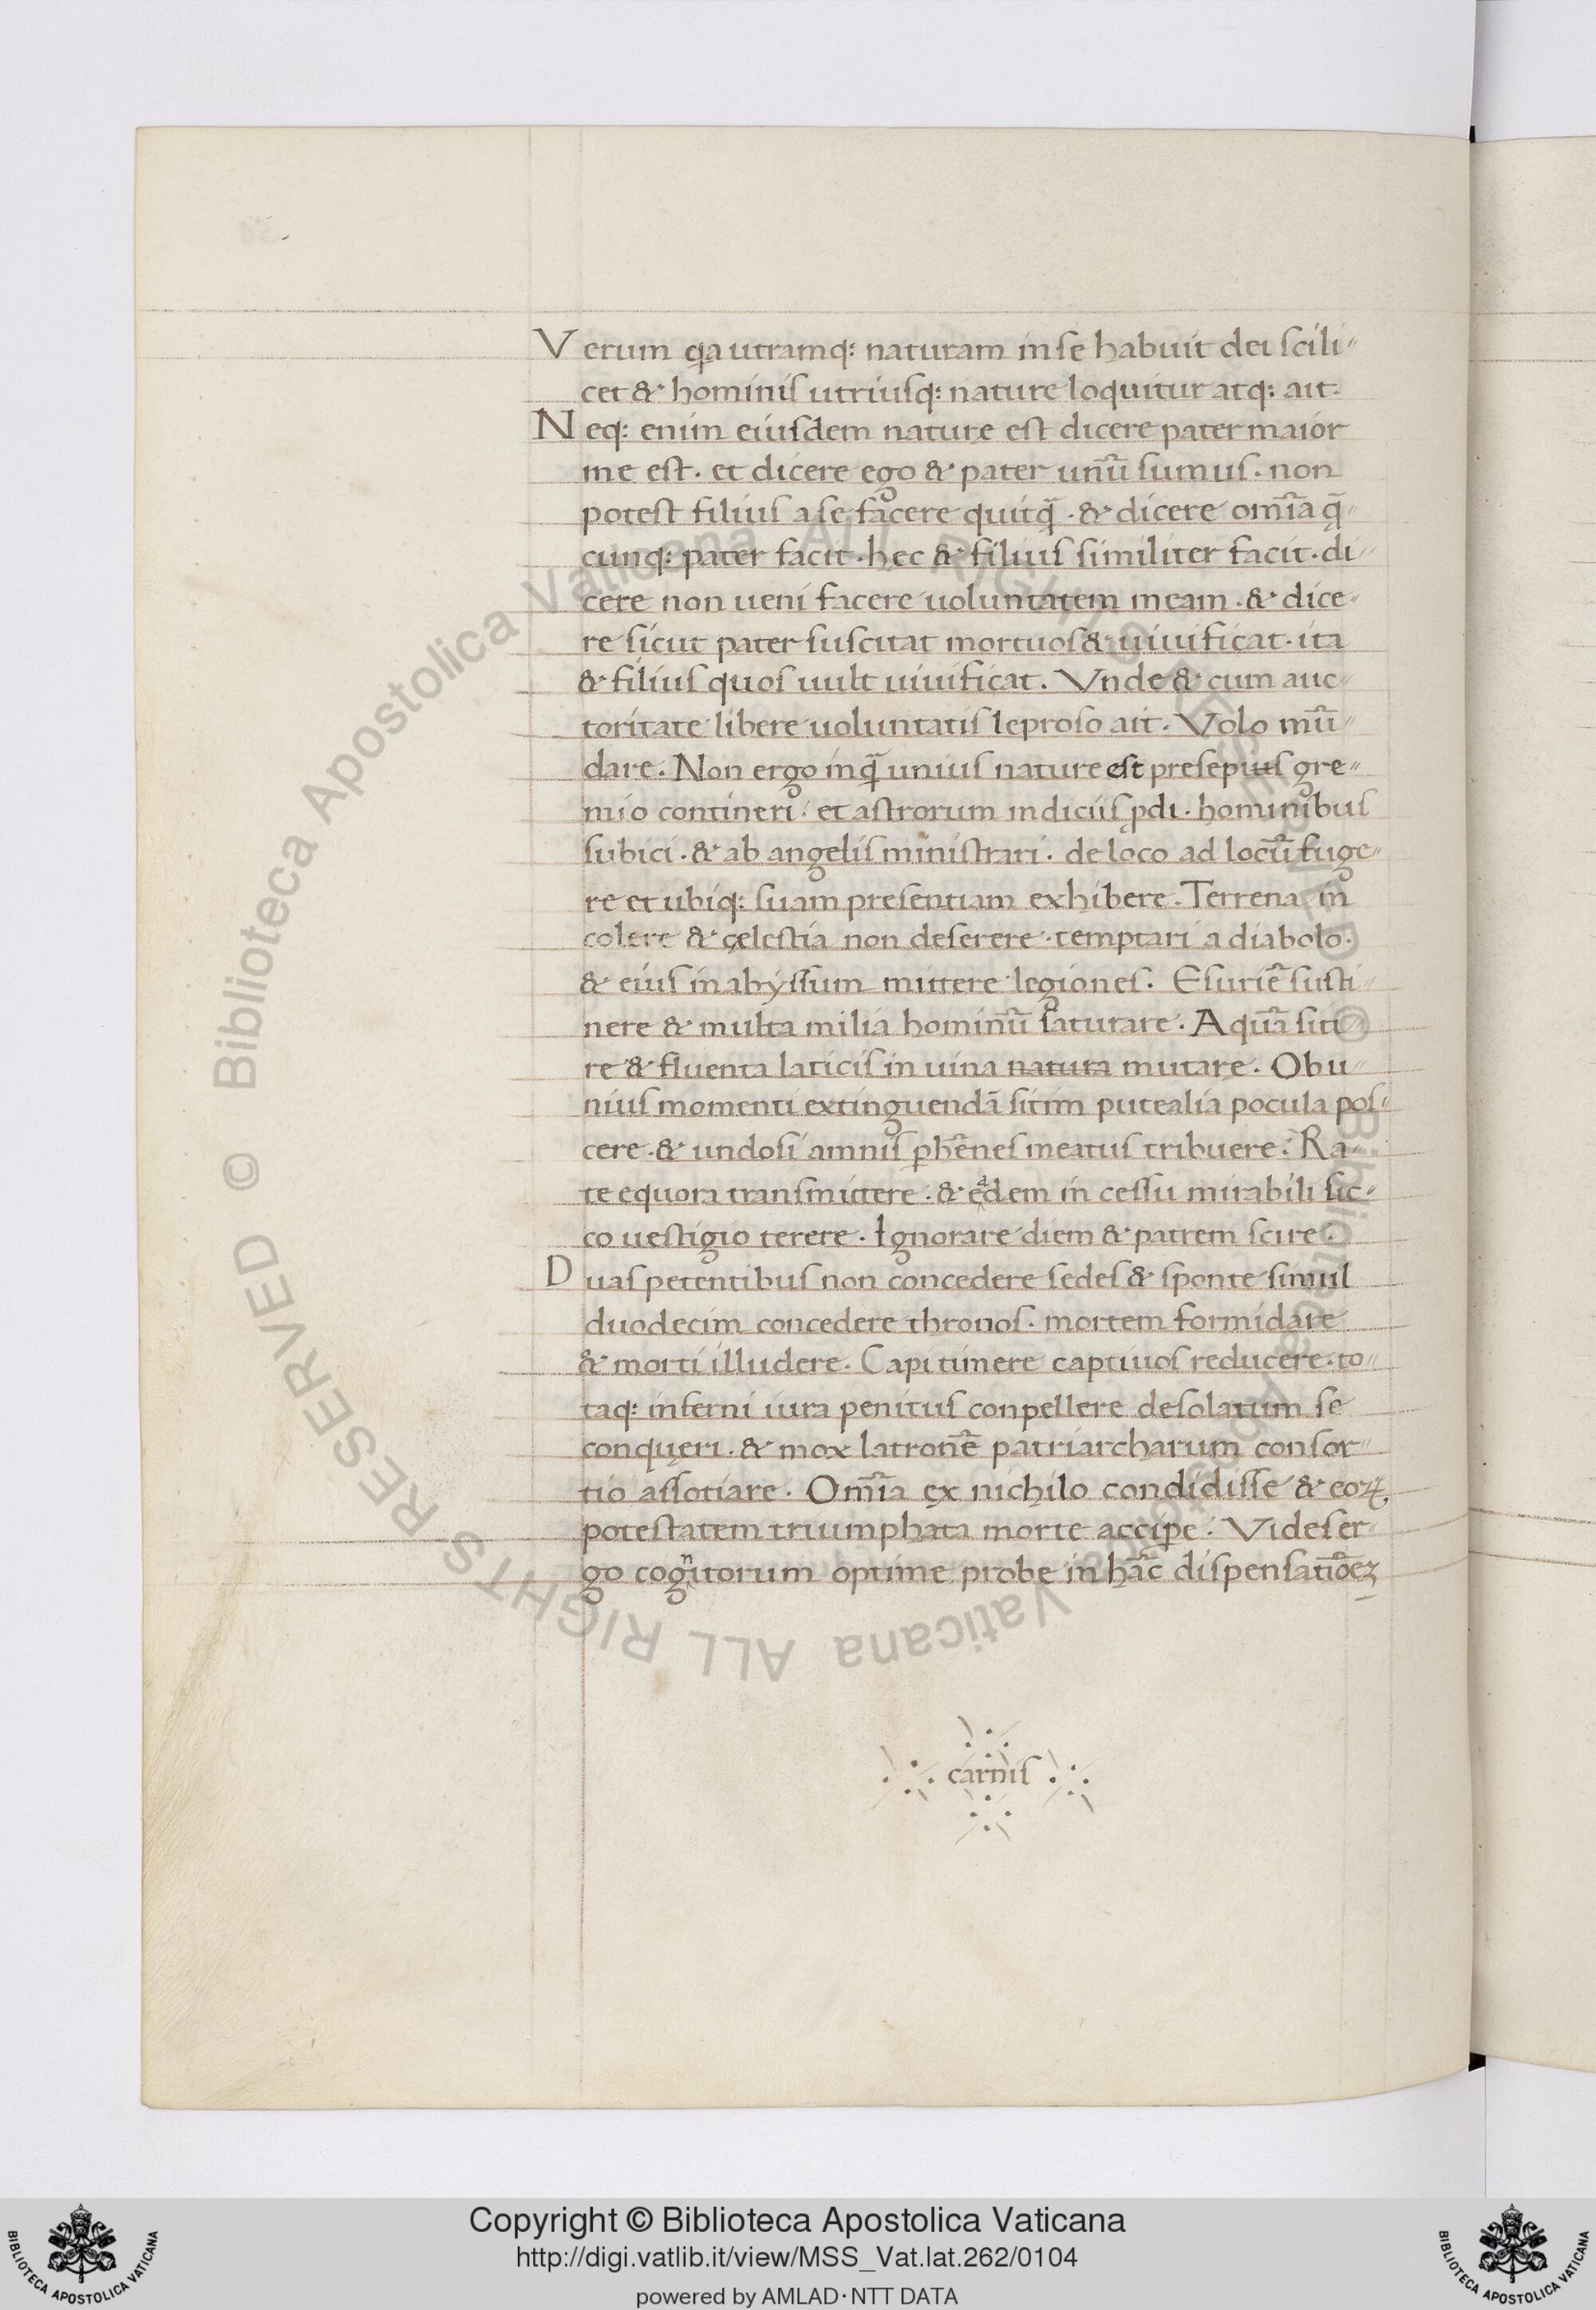 Verum qa utramq: naturam in se habuit dei scili"
cet & hominis utriusq: nature loquitur atq: ait.
Neq: enim eiusdem nature est dicere pater maior
me est. et dicere ego & pater unũ sumus. non
potest filius a se facere quitq̃. & dicere om̃ia q̃"
cunq: pater facit. hec & filius similiter facit. di"
cere non ueni facere uoluntatem meam. & dice"
re sicut pater suscitat mortuos & uiuificat. ita
& filius quos uult uiuificat. Vnde & cum auc"
toritate libere uoluntatis leproso ait. Volo mũ"
dare. Non ergo inq̃ unius nature est presepius gre"
mio contineri. et astrorum indiciis ꝓdi. hominibus
subici. & ab angelis ministrari. de loco ad locũ fuge"
re et ubiq: suam presentiam exhibere. Terrena in
colere & çelestia non deserere. temptari a diabolo.
& eius in abyssum mittere legiones. Esuriẽ susti"
nere & multa milia hominũ saturare. Aquã siti"
re & fluenta laticis in uina natura mutare. Ob u"
nius momenti extinguendã sitim putealia pocula pos"
cere. & undosi amnis ꝑhẽnes meatus tribuere. Ra"
te equora transmittere. & eadem in cessu mirabili sic"
co uestigio terere. Ignorare diem & patrem scire.
Duas petentibus non concedere sedes & sponte simul
duodecim concedere thronos. mortem formidare
& morti illudere. Capi timere captiuos reducere. to"
taq: inferni iura penitus conpellere desolatum se
conqueri. & mox latronẽ patriarcharum consor"
tio assotiare. Om̃ia ex nichilo condidisse & eoꝝ
potestatem triumphata morte acciꝑe. Vides er"
go cognitorum optime probe in hãc dispensatiõez
carnis
Copyright © Biblioteca Apostolica Vaticana
http://digi.vatlib.it/view/MSS_Vat.lat.262/0104
powered by AMLAD·NTT DATA
BIBLIOTECA APOSTOLICA VATICANA
BIBLIOTECA APOSTOLICA VATICANA